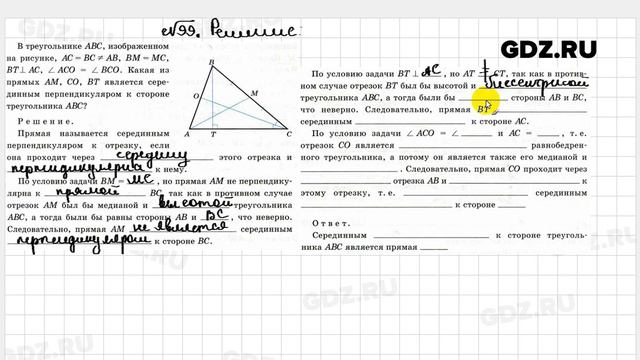 №99. Решение:
GDZ.RU
В треугольнике ABC, изображенном
на рисунке, AC = BC ≠ AB, BM = MC,
BT ⊥ AC, ∠ ACO = ∠ BCO. Какая из
прямых AM, CO, BT является сере-
динным перпендикуляром к стороне
треугольника ABC?
Решение.
Прямая называется серединным
перпендикуляром к отрезку, если
она проходит через середину этого отрезка и
перпендикулярна к нему.
По условию задачи BM = MC, но прямая AM не перпендику-
лярна к прямой BC, так как в противном случае
отрезок AM был бы медианой и высотой треугольника
ABC, а тогда были бы равны стороны AB и BC, что неверно.
Следовательно, прямая AM не является серединным
перпендикуляром к стороне BC.
B
O
M
A
T
C
По условию задачи BT ⊥ AC, но AT ≠ CT, так как в против-
ном случае отрезок BT был бы высотой и биссектрисой
треугольника ABC, а тогда были бы стороны AB и BC,
что неверно. Следовательно, прямая BT
серединным к стороне AC.
По условию задачи ∠ ACO = ∠ и AC = , т. е.
отрезок CO является равнобедрен-
ного треугольника, а потому он является также его медианой и
. Следовательно, прямая CO проходит через
отрезка AB и к
этому отрезку, т. е. серединным
к стороне AB.
Ответ.
Серединным к стороне треуголь-
ника ABC является прямая
GDZ.RU